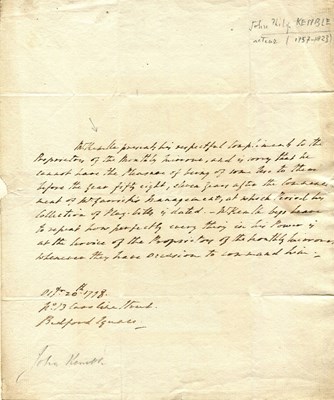 John Phil. KEMBLE
actor (1757-1823)
Mr Kemble presents his respectful Compliments to the
Proprietors of the Monthly Mirrour, and is sorry that he
cannot have the Pleasure of being of use to them
before the year fifty eight, eleven years after the Commence
ment of Mr Garrick's Management, at which Period his
Collection of Play-bills is dated — Mr Kemble begs leave
to repeat how perfectly every thing in his Power is
at the Service of the Proprietors of the Monthly Mirrour,
whenever they have occasion to command him —
26th 1798.
No 13 Caroline Street
Bedford Square —
John Kemble